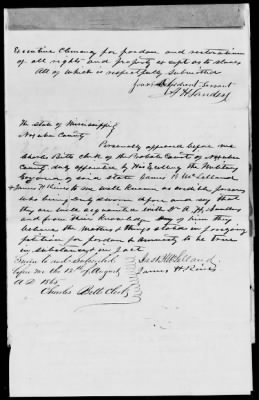 Executive Clemency for pardon and restoration
of all rights and property except as to slaves
All of which is respectfully submitted
Your Obedient Servant
A H Sanders
The State of Mississippi
Noxubee County
Personally appeared before me
Charles Bettis clerk of the Probate Court of Noxubee
County duly appointed by His Excellency the Military
Governor of said state James B McLelland
& James H Rives to me well known as credible persons
who being duly sworn depose and say that
they are well acquainted with Dr A H Sanders
and from their knowledge they of him they
believe the matters & things stated in foregoing
petition for pardon & amnesty to be true
in substance & in fact
Sworn to and subscribed
before me the 12th of August
A D 1865
Charles Bettis Clerk
Jas B McLelland
James H Rives